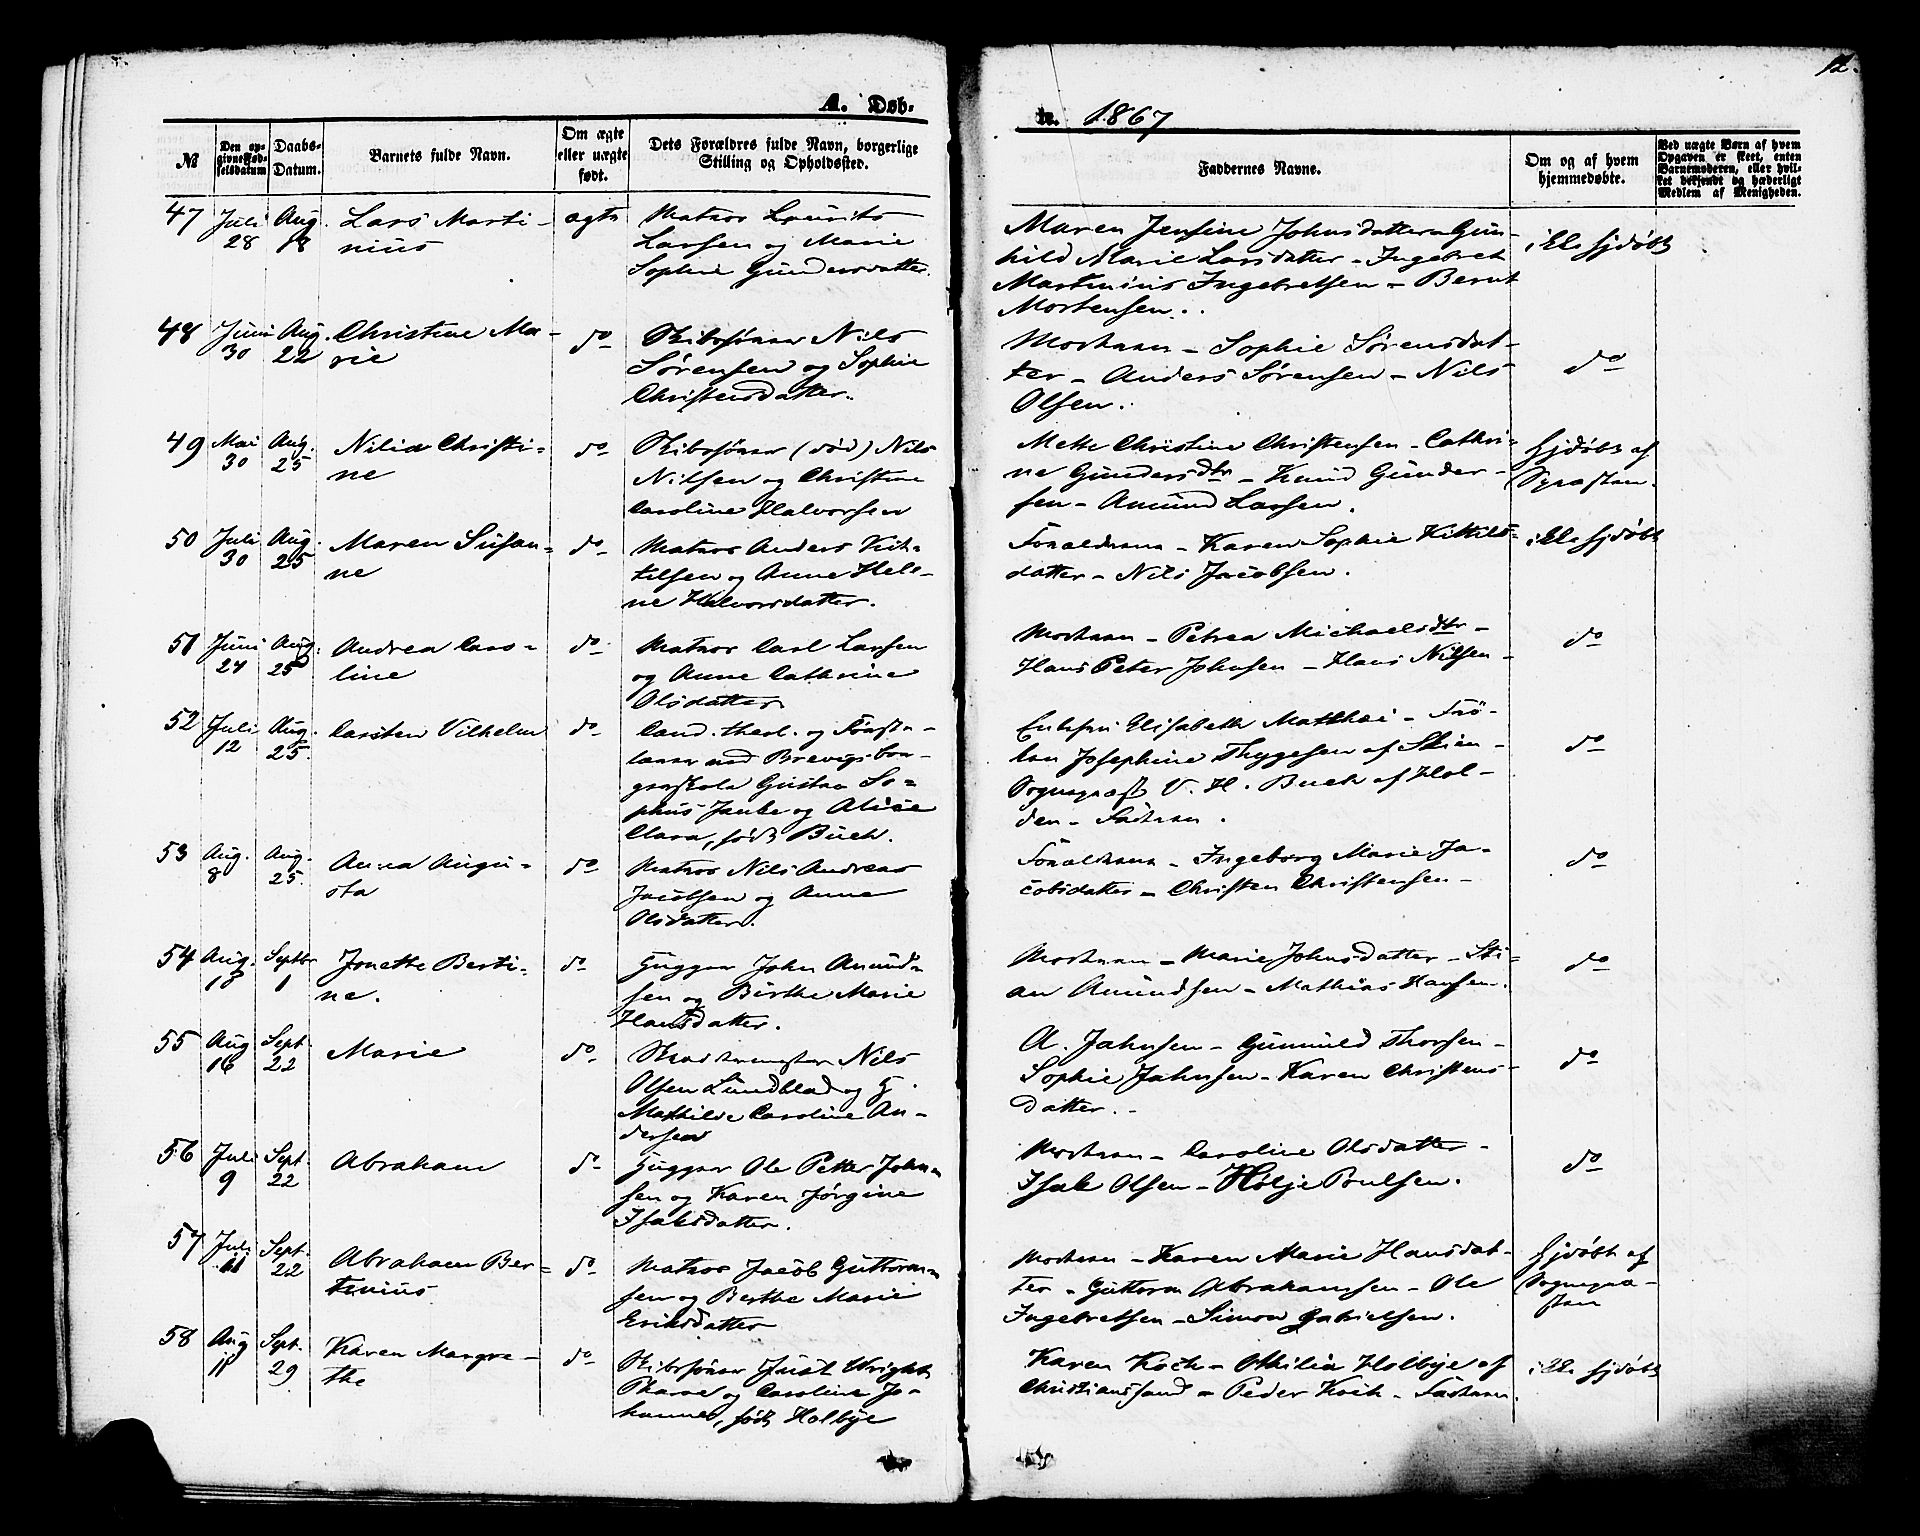 12.
A. Døb-
te. 1867
№
Den op-
givne Fød-
selsdatum
Daabs-
Datum.
Barnets fulde Navn.
Om ægte
eller uægte
født.
Dets Forældres fulde Navn, borgerlige
Stilling og Opholdssted.
Faddernes Navne.
Om og af hvem
hjemmedøbte.
Ved uægte Børn af hvem
Opgaven er skeet, enten
Barnemoderen, eller hvil-
ket bekjendt og hæderligt
Medlem af Menigheden.
47
Juli
28
Aug.
18
Lars Marti-
nius
ægte
Matros Lauritz
Larsen og Marie
Sophie Gundersdatter.
Maren Jensine Johnsdatter - Gun-
hild Marie Larsdatter - Ingebret
Martinius Ingebretsen - Bernt
Mortensen.
ikke hjdøbt
48
Juni
30
Aug.
22
Christine Ma-
rie
do
Skibstømmer Nils
Sørensen og Sophie
Christensdatter.
Moderen - Sophie Sørensdat-
ter - Anders Sørensen - Nils
Olsen.
do
49
Mai
30
Aug.
25
Nilia Christi-
ne
do
(død) Nils
Nilsen og Christine
Caroline Halvorsen
Mette Christine Christensen - Cathri-
ne Gundersdtr - Knud Gunder-
sen - Amund Larsen.
hjdøbt af
50
Juli
30
Aug.
25
Maren Susan-
ne
do
Matros Anders Kit-
tilsen og Anne Hele-
ne Halvorsdatter.
Forældrene - Karen Sophie Kittils-
datter - Nils Jacobsen.
ikke hjdøbt
51
Juni
24
Aug.
25
Andrea Caro-
line
do
Matros Carl Larsen
og Anne Cathrine
Olsdatter
Moderen - Petrea Michaelsdtr -
Hans Peter Johnsen - Hans Nilsen -
do
52
Juli
12
Aug.
25.
Carsten Vilhelm
do
Cand. theol. og Første-
lærer ved Brevigs bor-
gerskole Gustav So-
phus Janke og Alice
Clara, født Buch.
Elisabeth Matthei - Frø-
ken Josephine Thygesen af Skien -
Sogneprest V. H. Buch af Hol-
den - Faderen.
do
53
Aug.
8
Aug.
25.
Anna Augu-
sta
do
Matros Nils Andreas
Jacobsen og Anne
Olsdatter.
Forældrene - Ingeborg Marie Ja-
cobsdatter - Christen Christensen -
do
54
Aug.
18
Septbr
1
Jonette Berti-
ne.
do
John Amund-
sen og Birthe Marie
Hansdatter.
Moderen - Marie Johnsdatter - Sti-
an Amundsen - Mathias Hansen.
do
55
Aug
16
Sept.
22
Marie
do
Nils
Olsen Lundblad og
Mathilde Caroline An-
dersen
A. Jahnsen - Gunnuld Thorsen -
Sophie Jahnsen - Karen Christens-
datter. -
do
56
Juli
9
Sept.
22
Abraham
do
Ole Petter John-
sen og Karen Jørgine
Isaksdatter.
Moderen - Caroline Olsdatter -
Isak Olsen - Holje Poulsen.
do
57
Juli
11
Sept.
22
Abraham Ber-
tinius
do
Matros Jacob Guttorm-
sen og Berthe Marie
Eriksdatter
Moderen - Karen Marie Hansdat-
ter - Guttorm Abrahamsen - Ole
Ingebretsen - Simon Gabrielsen.
hjdøbt af
Sognepræ-
sten
58
Aug
11
Sept.
29
Karen Margre-
the
do
Skibsfører Just Wright
og Caroline Jo-
hanne, født Holbye
Karen Koch - Othilia Holbye af
Christianssand - Peder Koch - Faderen.
ikke hjdøbt